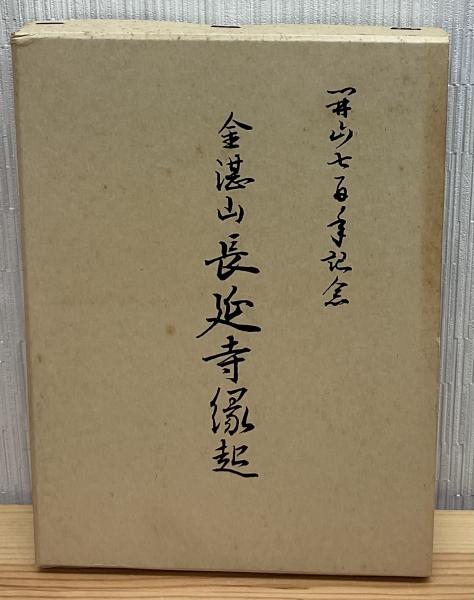 開山七百年記念
金湛山長延寺縁起